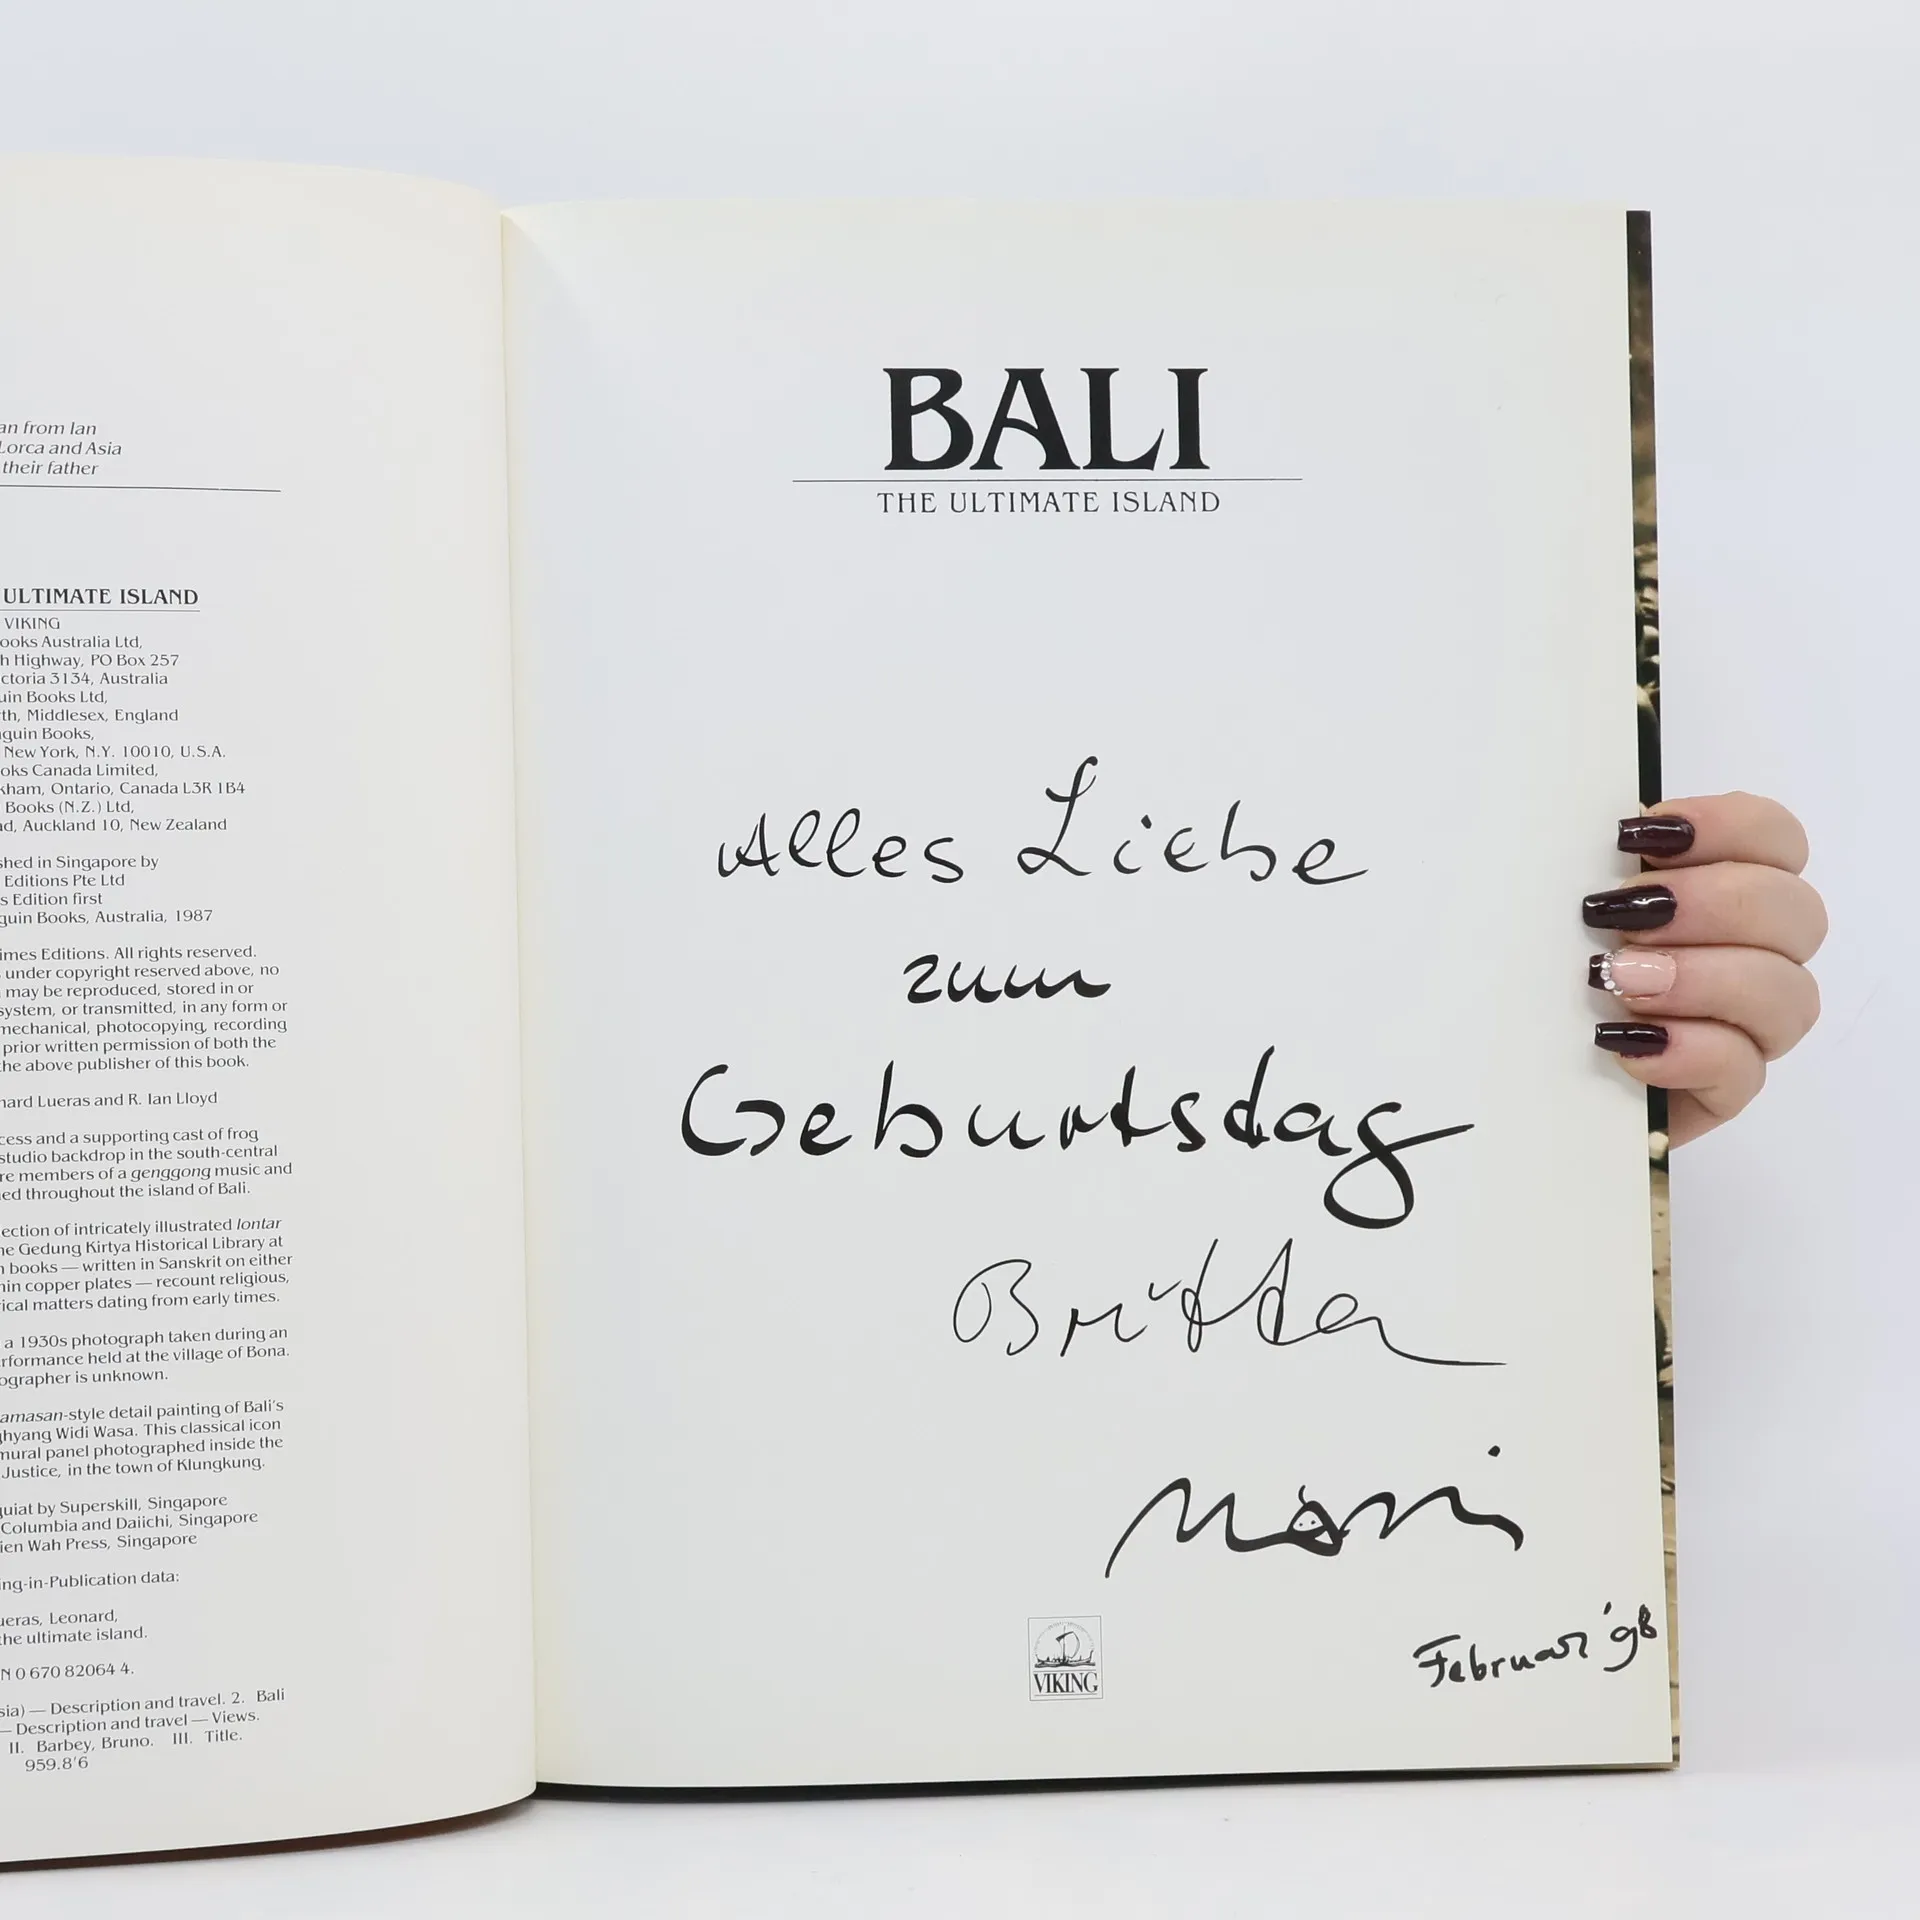 an from Ian
Lorca and Asia
their father
ULTIMATE ISLAND
VIKING
ooks Australia Ltd,
h Highway, PO Box 257
ctoria 3134, Australia
uin Books Ltd,
th, Middlesex, England
guin Books,
New York, N.Y. 10010, U.S.A.
oks Canada Limited,
kham, Ontario, Canada L3R 1B4
Books (N.Z.) Ltd,
d, Auckland 10, New Zealand
shed in Singapore by
Editions Pte Ltd
s Edition first
guin Books, Australia, 1987
imes Editions. All rights reserved.
s under copyright reserved above, no
may be reproduced, stored in or
system, or transmitted, in any form or
mechanical, photocopying, recording
prior written permission of both the
the above publisher of this book.
nard Lueras and R. Ian Lloyd
cess and a supporting cast of frog
studio backdrop in the south-central
re members of a genggong music and
ed throughout the island of Bali.
ection of intricately illustrated lontar
he Gedung Kirtya Historical Library at
n books — written in Sanskrit on either
hin copper plates — recount religious,
rical matters dating from early times.
a 1930s photograph taken during an
rformance held at the village of Bona.
ographer is unknown.
amasan-style detail painting of Bali's
ghyang Widi Wasa. This classical icon
mural panel photographed inside the
Justice, in the town of Klungkung.
quiat by Superskill, Singapore
Columbia and Daiichi, Singapore
ien Wah Press, Singapore
ing-in-Publication data:
ueras, Leonard,
the ultimate island.
N 0 670 82064 4.
sia) — Description and travel. 2. Bali
— Description and travel — Views.
II. Barbey, Bruno. III. Title.
959.8'6
BALI
THE ULTIMATE ISLAND
Alles Liebe
zum
Geburtstag
Britta
VIKING
Februar '98